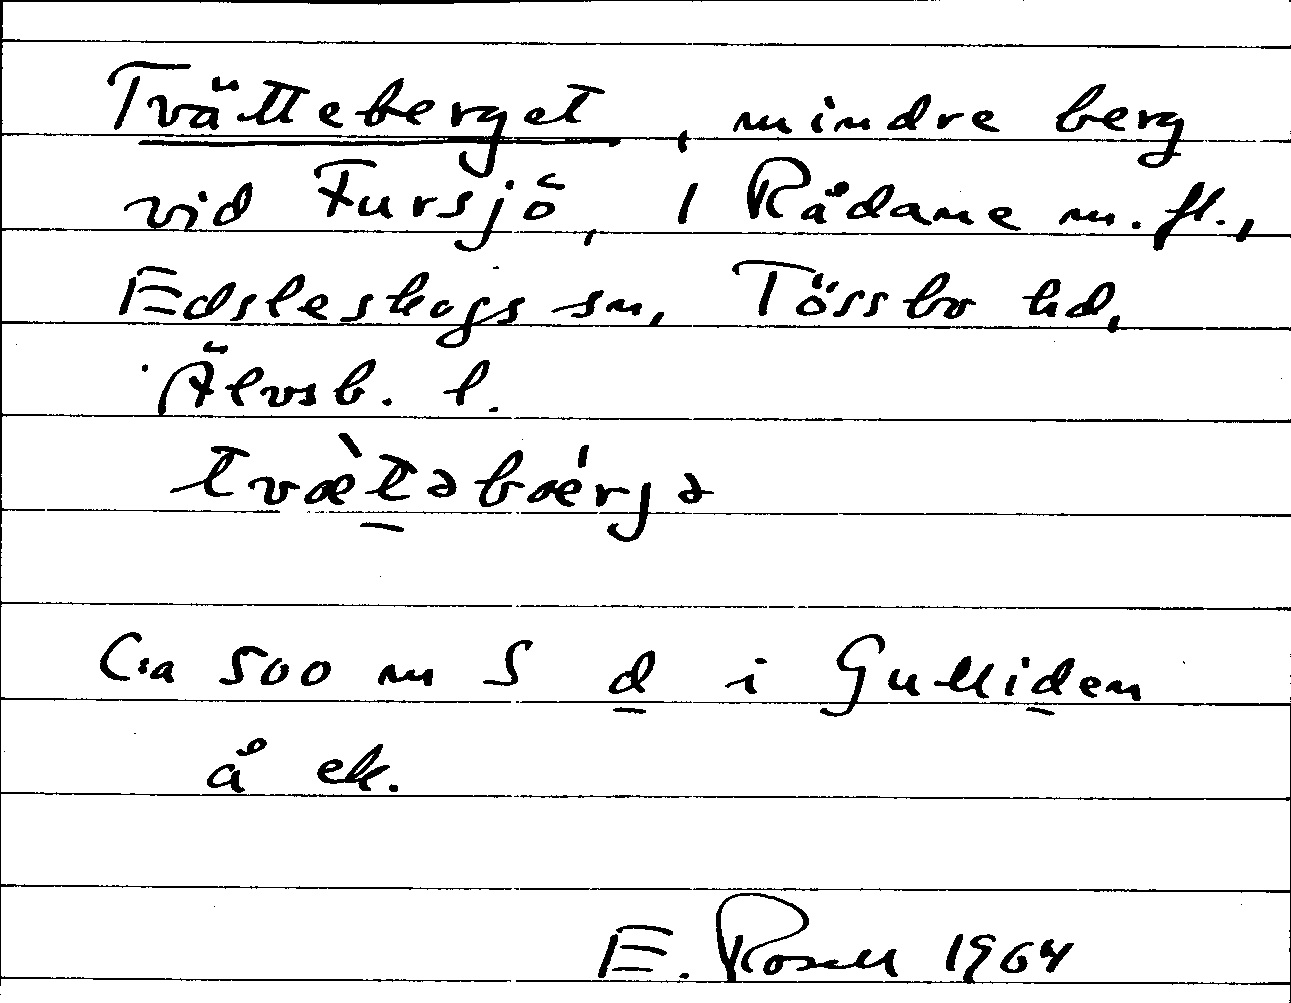 Tvätteberget, mindre berg
vid Fursjö, 1 Rådane m.fl.,
Edsleskogs sn, Tössbo hd,
Älvsb. l.
tvæ̀t̠əbǽrjə
Ca 500 m S d̲ i Gullid̲en
å ek.
E. Rosell 1964